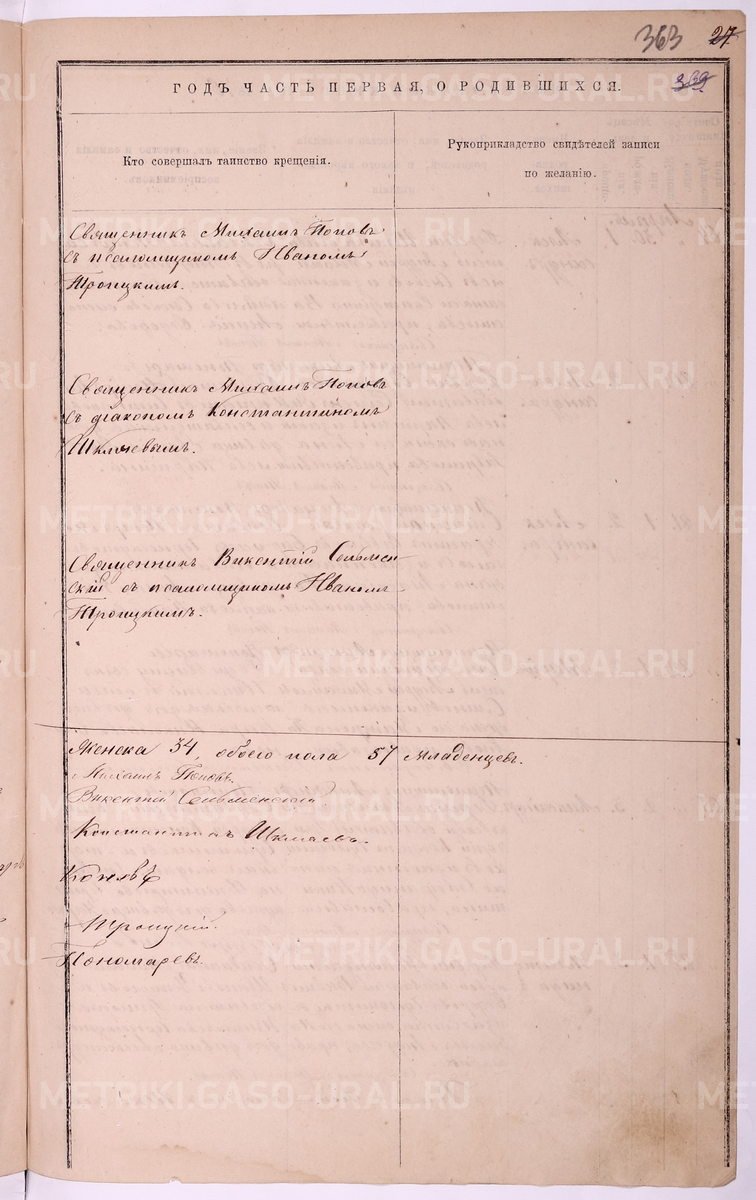 363 27
339
ГОДЪ ЧАСТЬ ПЕРВАЯ, О РОДИВШИХСЯ.
Кто совершалъ таинство крещенія.
Рукоприкладство свидѣтелей записи
по желанію.
Священникъ Михаилъ Поповъ
съ псаломщикомъ Иваномъ
Троицкимъ.
Священникъ Михаилъ Поповъ
съ діакономъ Константиномъ
Священникъ Викентій Сельмен-
скій съ псаломщикомъ Иваномъ
Троицкимъ.
Женска 34, обоего пола 57 младенцевъ.
Михаилъ Поповъ.
Викентій Сельменскій
Константинъ
Троицкій.
Пономаревъ.
METRIKI.GASO-URAL.RU